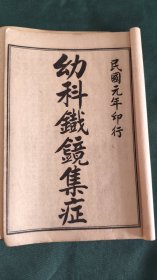 民國元年印行
幼科鐵鏡集症